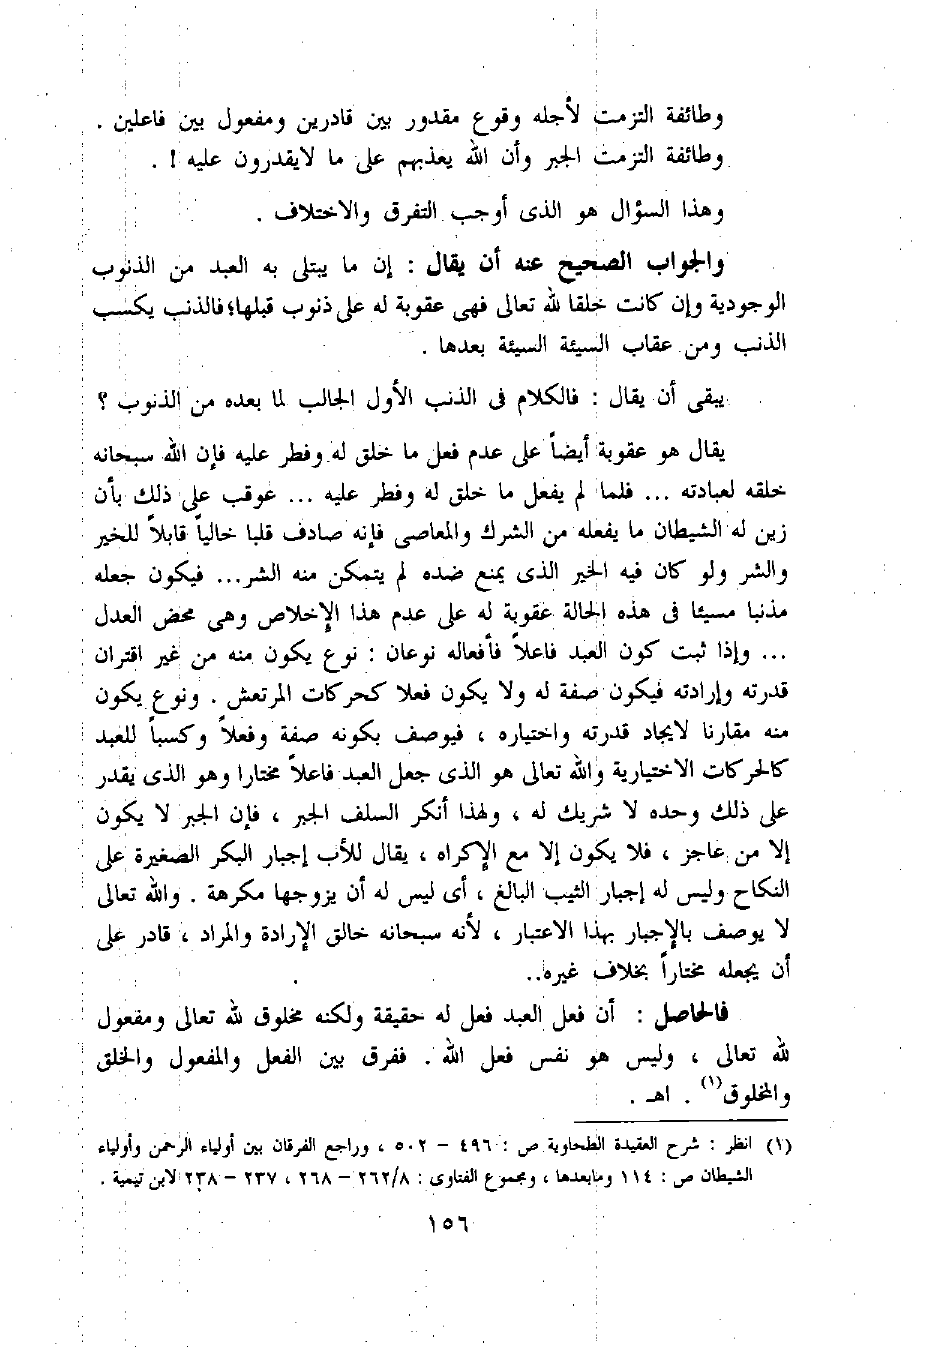 وطائفة التزمت لأجله وقوع مقدور بين قادرين ومفعول بين فاعلين .
وطائفة التزمت الجبر وأن الله يعذبهم على ما لايقدرون عليه ! .
وهذا السؤال هو الذى أوجب التفرق والاختلاف .
والجواب الصحيح عنه أن يقال : إن ما يبتلى به العبد من الذنوب
الوجودية وإن كانت خلقا لله تعالى فهى عقوبة له على ذنوب قبلها؛ فالذنب يكسب
الذنب ومن عقاب السيئة السيئة بعدها .
يبقى أن يقال : فالكلام فى الذنب الأول الجالب لما بعده من الذنوب ؟
يقال هو عقوبة أيضاً على عدم فعل ما خلق له وفطر عليه فإن الله سبحانه
خلقه لعبادته ... فلما لم يفعل ما خلق له وفطر عليه ... عوقب على ذلك بأن
زين له الشيطان ما يفعله من الشرك والمعاصى فإنه صادف قلبا خالياً قابلاً للخير
والشر ولو كان فيه الخير الذى يمنع ضده لم يتمكن منه الشر... فيكون جعله
مذنبا مسيئا فى هذه الحالة عقوبة له على عدم هذا الإخلاص وهى محض العدل
... وإذا ثبت كون العبد فاعلاً فأفعاله نوعان : نوع يكون منه من غير اقتران
قدرته وإرادته فيكون صفة له ولا يكون فعلا كحركات المرتعش . ونوع يكون
منه مقارنا لايجاد قدرته واختياره ، فيوصف بكونه صفة وفعلاً وكسباً للعبد
كالحركات الاختيارية والله تعالى هو الذى جعل العبد فاعلاً مختارا وهو الذى يقدر
على ذلك وحده لا شريك له ، ولهذا أنكر السلف الجبر ، فإن الجبر لا يكون
إلا من عاجز ، فلا يكون إلا مع الإكراه ، يقال للأب إجبار البكر الصغيرة على
النكاح وليس له إجبار الثيب البالغ ، أى ليس له أن يزوجها مكرهة . والله تعالى
لا يوصف بالإجبار بهذا الاعتبار ، لأنه سبحانه خالق الإرادة والمراد ، قادر على
أن يجعله مختاراً بخلاف غيره..
فالحاصل : أن فعل العبد فعل له حقيقة ولكنه مخلوق لله تعالى ومفعول
لله تعالى ، وليس هو نفس فعل الله . ففرق بين الفعل والمفعول والخلق
والمخلوق(١) . اهـ .
(١) انظر : شرح العقيدة الطحاوية ص : ٤٩٦ – ٥٠٢ ، وراجع الفرقان بين أولياء الرحمن وأولياء
الشيطان ص : ١١٤ ومابعدها ، ومجموع الفتاوى : ٢٦٢/٨ – ٢٦٨ ، ٢٣٧ – ٢٣٨ لابن تيمية .
١٥٦